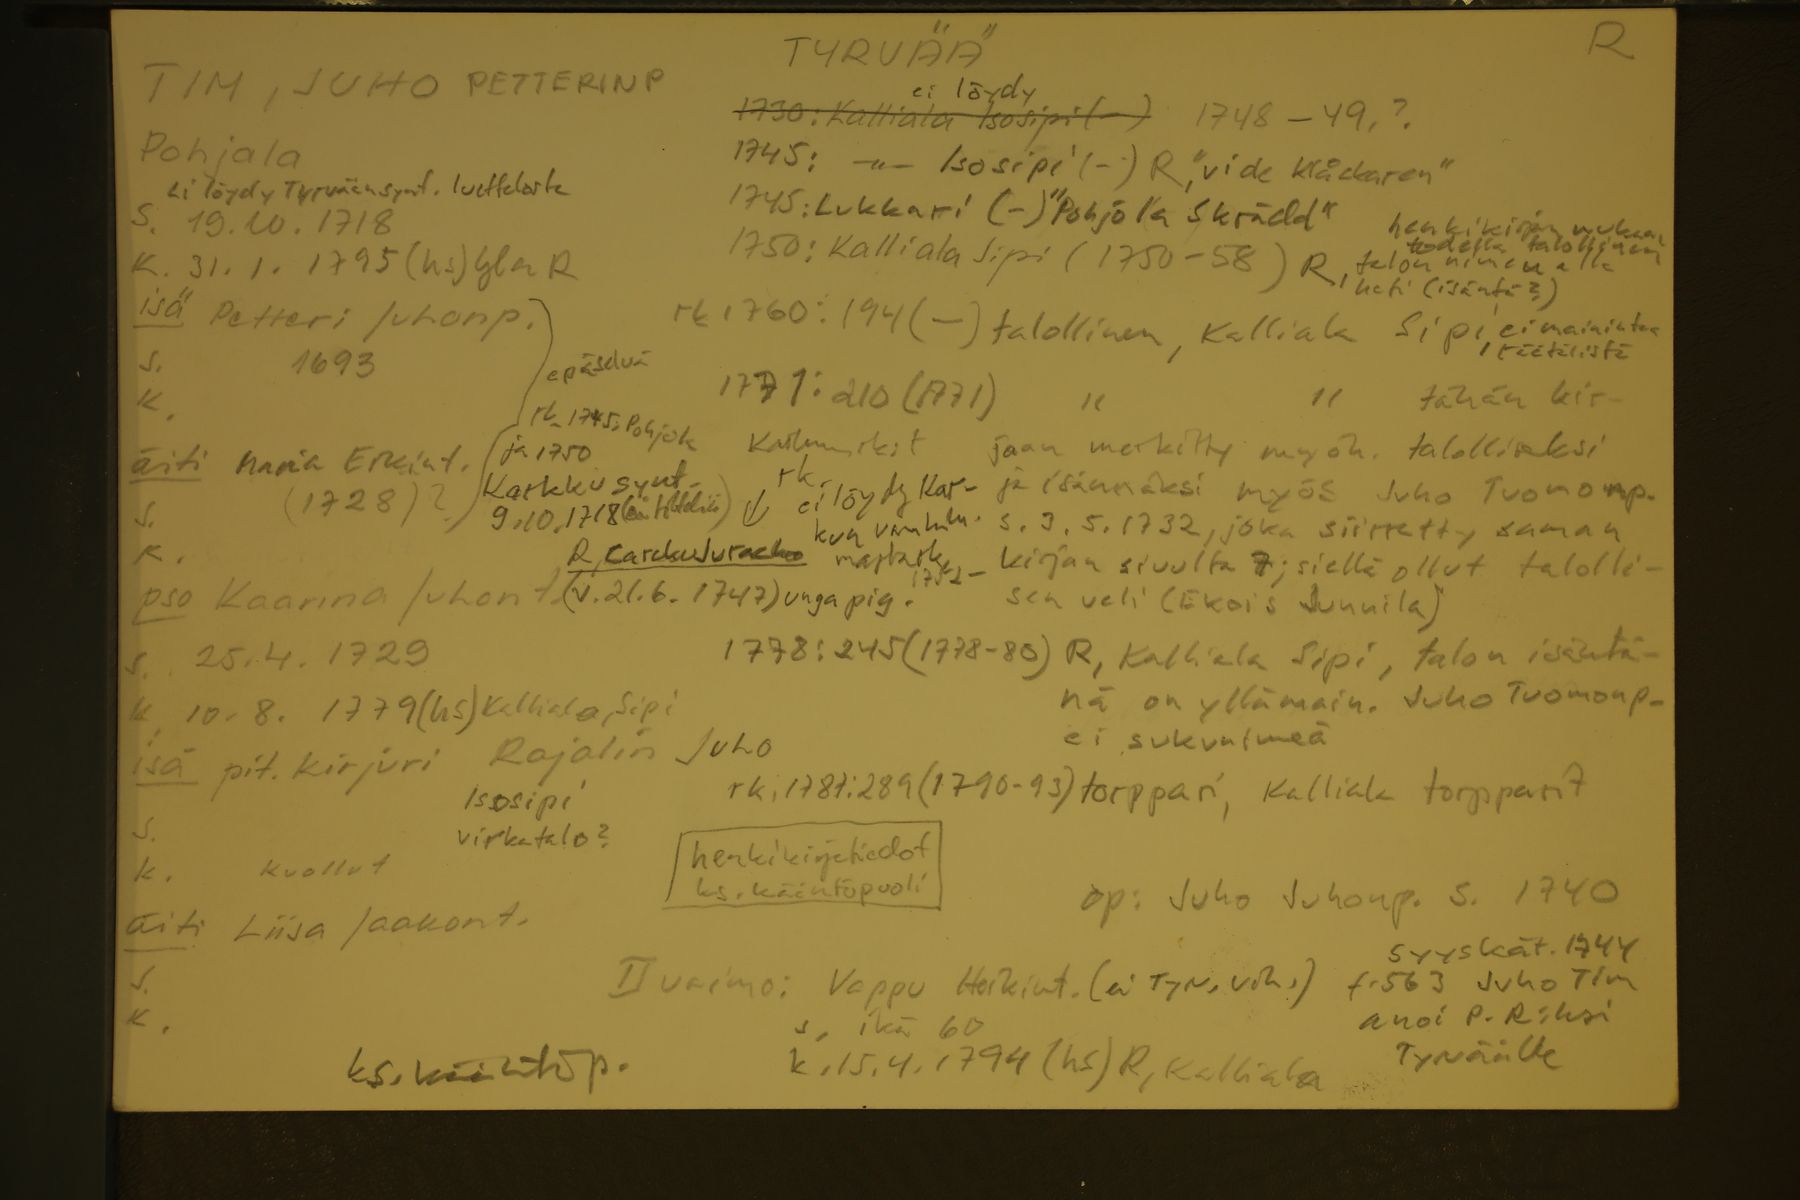 TYRVÄÄ
R
TIM, JUHO PETTERINP
Pohjala
ei löydy Tyrvään synt. luettelosta
s. 19.10.1718
k. 31.1.1795 (hs) R
isä Petteri Juhonp.
s. 1693
k.
epäselvä
rk. 1745: Pohjola
ja 1750
äiti Maria Erkint.
(1728)?
Karkku synt.
9.10.1718
s.
k.
R, Carcku
pso Kaarina Juhont. (v. 21.6.1747) unga pig.
s. 25.4.1729
k. 10.8.1779 (hs) Kalliala, Sipi
isä pit. kirjuri Rajalin Juho
Isosipi
virkatalo?
s.
k. kuollut
äiti Liisa Jaakont.
s.
k.
ks. kääntöp.
ei löydy
1730: Kalliala Isosipi (-) 1748-49.?
1745: -"- Isosipi (-) R, "vide klåckaren"
1745: Lukkari (-) "Pohjola Skrädd"
1750: Kalliala Sipi (1750-58) R,
henkikirjan mukaan
todella talollinen
talon nimen alla
heti (isäntä?)
rk 1760: 194 (-) talollinen, Kalliala Sipi, ei mainintaa
räätälistä
1771: 210 (1771) " " tähän kir-
jaan merkitty myöh. talolliseksi
ja isännäksi myös Juho Tuomonp.
s. 3.5.1732, joka siirretty saman
kirjan sivulta 7; siellä ollut talolli-
sen veli (Ekois Junnila)
rk.
ei löydy Kar-
1778: 245 (1778-80) R, Kalliala Sipi, talon isäntä-
nä on yllämain. Juho Tuomonp.
ei sukunimeä
rk. 1787: 289 (1790-93) torppari, Kalliala torpparit
henkikirjatiedot
ks. kääntöpuoli
op: Juho Juhonp. s. 1740
II vaimo: Vappu Heikint. (ei Tyrv. vih.)
s. ikä 60
k. 15.4.1794 (hs) R, Kalliala
syyskär. 1744
f. 563 Juho Tim
anoi p. R:ksi
Tyrväälle